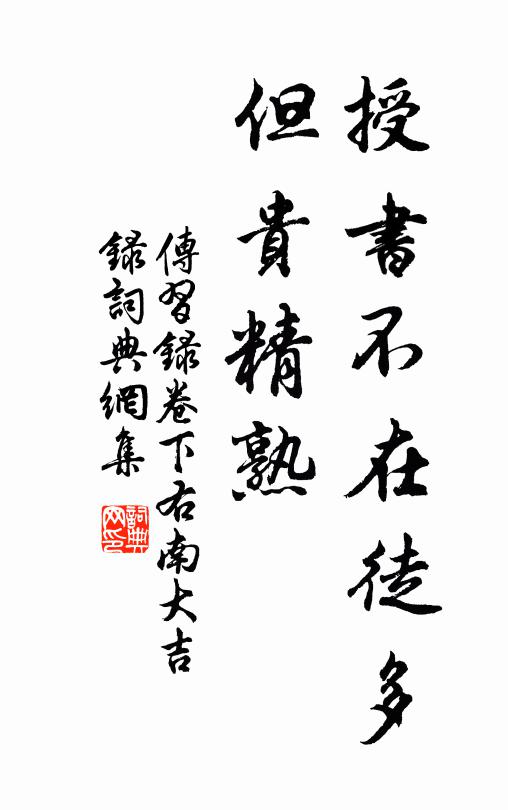 授書不在徒多
但貴精熟
傳習録卷下右南大吉
録詞典網集
詞典网印